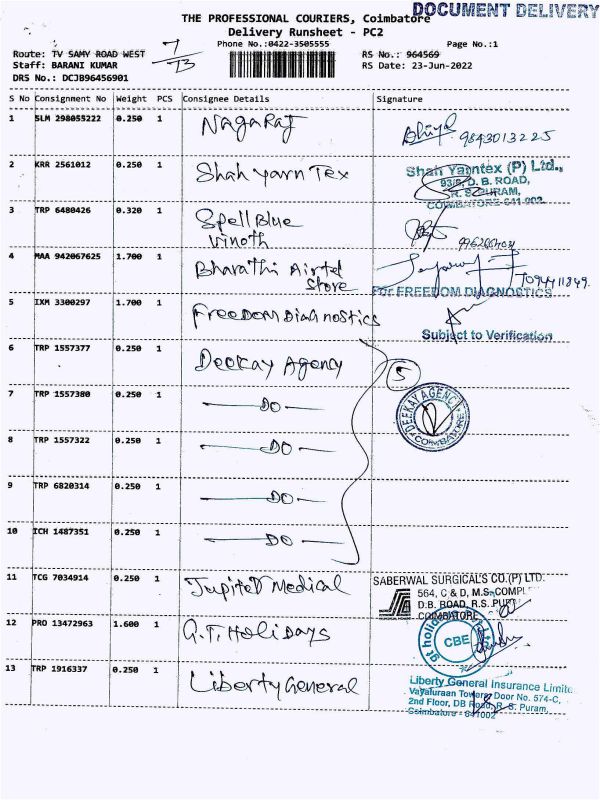 DOCUMENT DELIVERY
THE PROFESSIONAL COURIERS, Coimbatore
Delivery Runsheet - PC2
Phone No.:0422-3505555
Page No.:1
Route: TV SAMY ROAD WEST
7/13
RS No.: 964569
Staff: BARANI KUMAR
RS Date: 23-Jun-2022
DRS No.: DCJB96456901
S No Consignment No Weight PCS Consignee Details Signature
1 SLM 298055222 0.250 1 Nagaraj
9843013225
2 KRR 2561012 0.250 1 Shah Yarn Tex
Shah Yarntex (P) Ltd.,
93/5, D. B. ROAD,
R. S. PURAM,
COIMBATORE-641 002
3 TRP 6480426 0.320 1 Spell Blue
Vinoth
4 MAA 942067625 1.700 1 Bharathi Airtel
Store
7094411849.
5 IXM 3300297 1.700 1 Freedom Diagnostics
For FREEDOM DIAGNOSTICS
Subject to Verification
6 TRP 1557377 0.250 1 Deekay Agency
5
7 TRP 1557380 0.250 1 — DO —
DEEKAY AGENCY
COIMBATORE
8 TRP 1557322 0.250 1 — DO —
9 TRP 6820314 0.250 1 — DO —
10 ICH 1487351 0.250 1 — DO —
11 TCG 7034914 0.250 1 Jupited Medical
SABERWAL SURGICAL'S CO.(P) LTD.
564, C & D, M.S. COMPL
D.B. ROAD, R.S. PUR
COIMBATORE
12 PRO 13472963 1.600 1 G.T. Holidays
gt holidays
CBE
13 TRP 1916337 0.250 1 Liberty General
Liberty General Insurance Limite
Vayaluraan Towers Door No. 574-C,
2nd Floor, DB Road, R. S. Puram,
Coimbatore - 641002